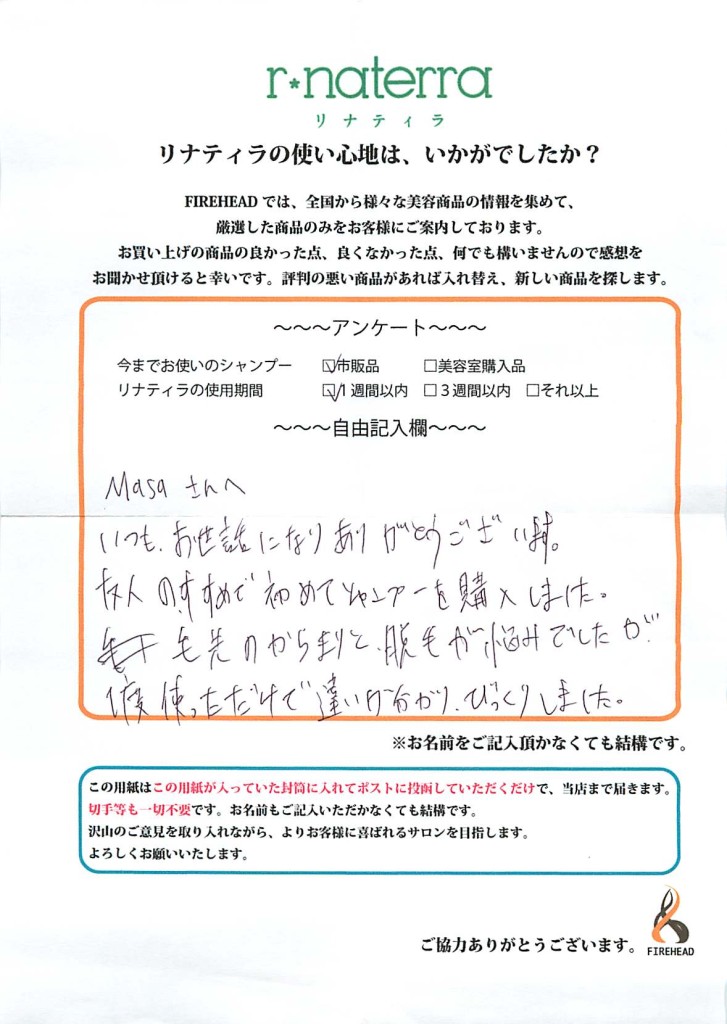 r*naterra
リナティラ
リナティラの使い心地は、いかがでしたか？
FIREHEADでは、全国から様々な美容商品の情報を集めて、
厳選した商品のみをお客様にご案内しております。
お買い上げの商品の良かった点、良くなかった点、何でも構いませんので感想を
お聞かせ頂けると幸いです。評判の悪い商品があれば入れ替え、新しい商品を探します。
～～～アンケート～～～
今までお使いのシャンプー ☑市販品 □美容室購入品
リナティラの使用期間 ☑1週間以内 □3週間以内 □それ以上
～～～自由記入欄～～～
Masa さんへ
いつも、お世話になりありがとうございます。
友人のすすめで初めてシャンプーを購入しました。
毛先のからまりと、脱毛が悩みでしたが、
1度使っただけで違いが分かり、びっくりしました。
※お名前をご記入頂かなくても結構です。
この用紙はこの用紙が入っていた封筒に入れてポストに投函していただくだけで、当店まで届きます。
切手等も一切不要です。お名前もご記入いただかなくても結構です。
沢山のご意見を取り入れながら、よりお客様に喜ばれるサロンを目指します。
よろしくお願いいたします。
ご協力ありがとうございます。
FIREHEAD